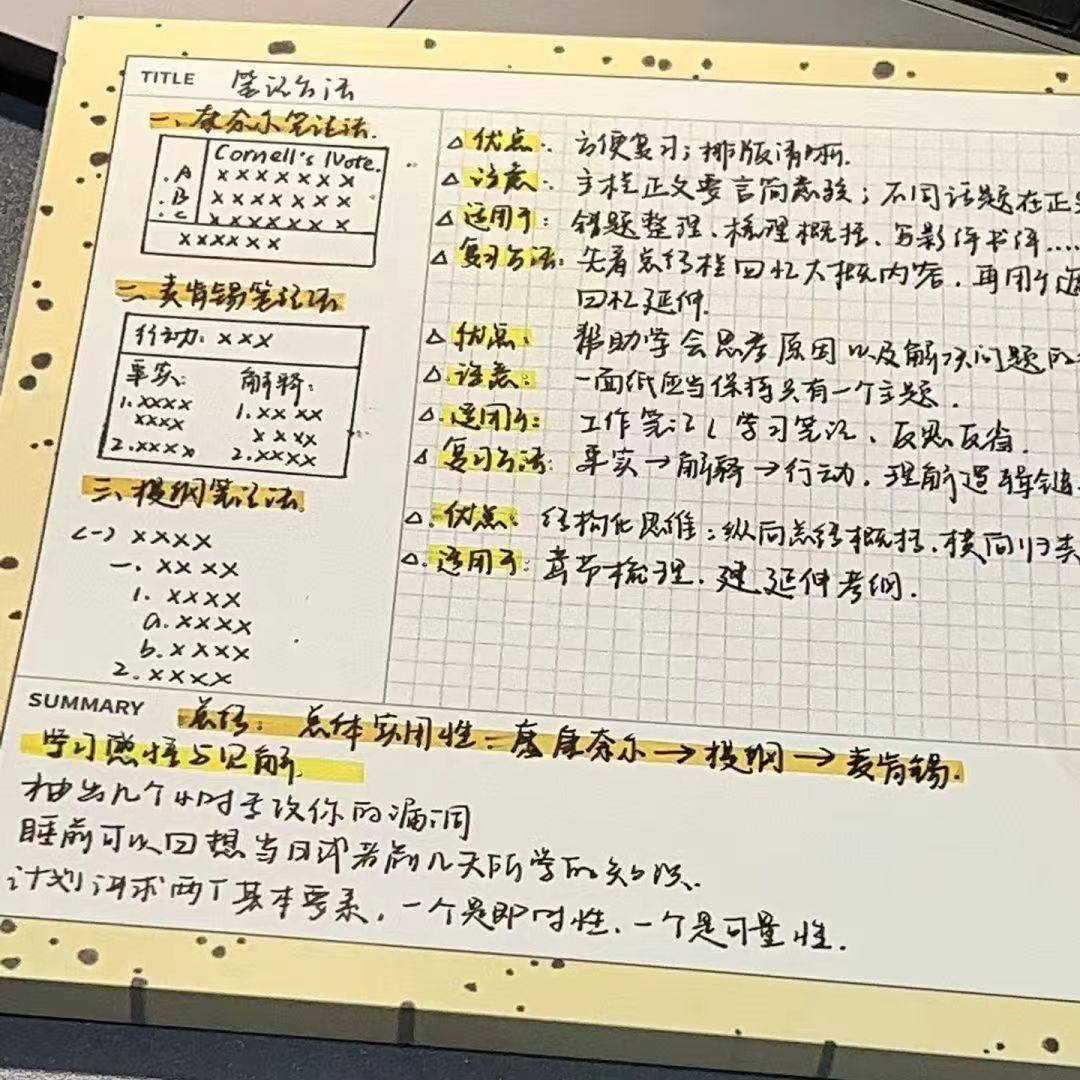 TITLE 笔记方法
一、康奈尔笔记法.
Cornell's Note.
.A xxxxxxx
.B xxxxxxx
.C xxxxxxx
xxxxxx
二、麦肯锡笔记法
行动: xxx
事实: 解释:
1.xxxx 1.xxxx
xxxx xxxx
2.xxxx 2.xxxx
三、提纲笔记法
(一) xxxx
一. xxxx
1. xxxx
a. xxxx
b. xxxx
2. xxxx
△ 优点: 方便复习; 排版清晰.
△ 注意: 主栏正文要言简意赅; 不同话题在正
△ 适用于: 错题整理、梳理概括、写影评书评......
△ 复习方法: 先看总结栏回忆大概内容, 再用
回忆延伸.
△ 优点: 帮助学会思考原因以及解决问题的
△ 注意: 一面纸应当保持只有一个主题.
△ 适用于: 工作笔记、学习笔记、反思反省.
△ 复习方法: 事实→解释→行动, 理解逻辑链
△ 优点: 结构化思维: 纵向总结概括、横向归类
△ 适用于: 章节梳理, 建延伸考纲.
SUMMARY 总结: 总体实用性: 康康奈尔→提纲→麦肯锡.
学习感悟与见解
抽出几个小时专攻你的漏洞
睡前可以回想当日或者前几天所学的知识.
计划讲求两个基本要素, 一个是即时性、一个是可量性.